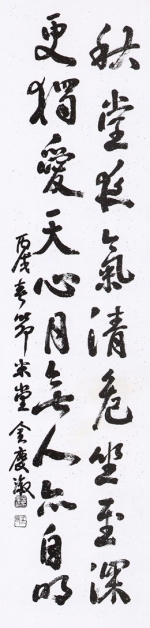 秋堂夜氣清危坐至深
更獨愛天心月無人亦自明
丙戌春節米堂金慶淑